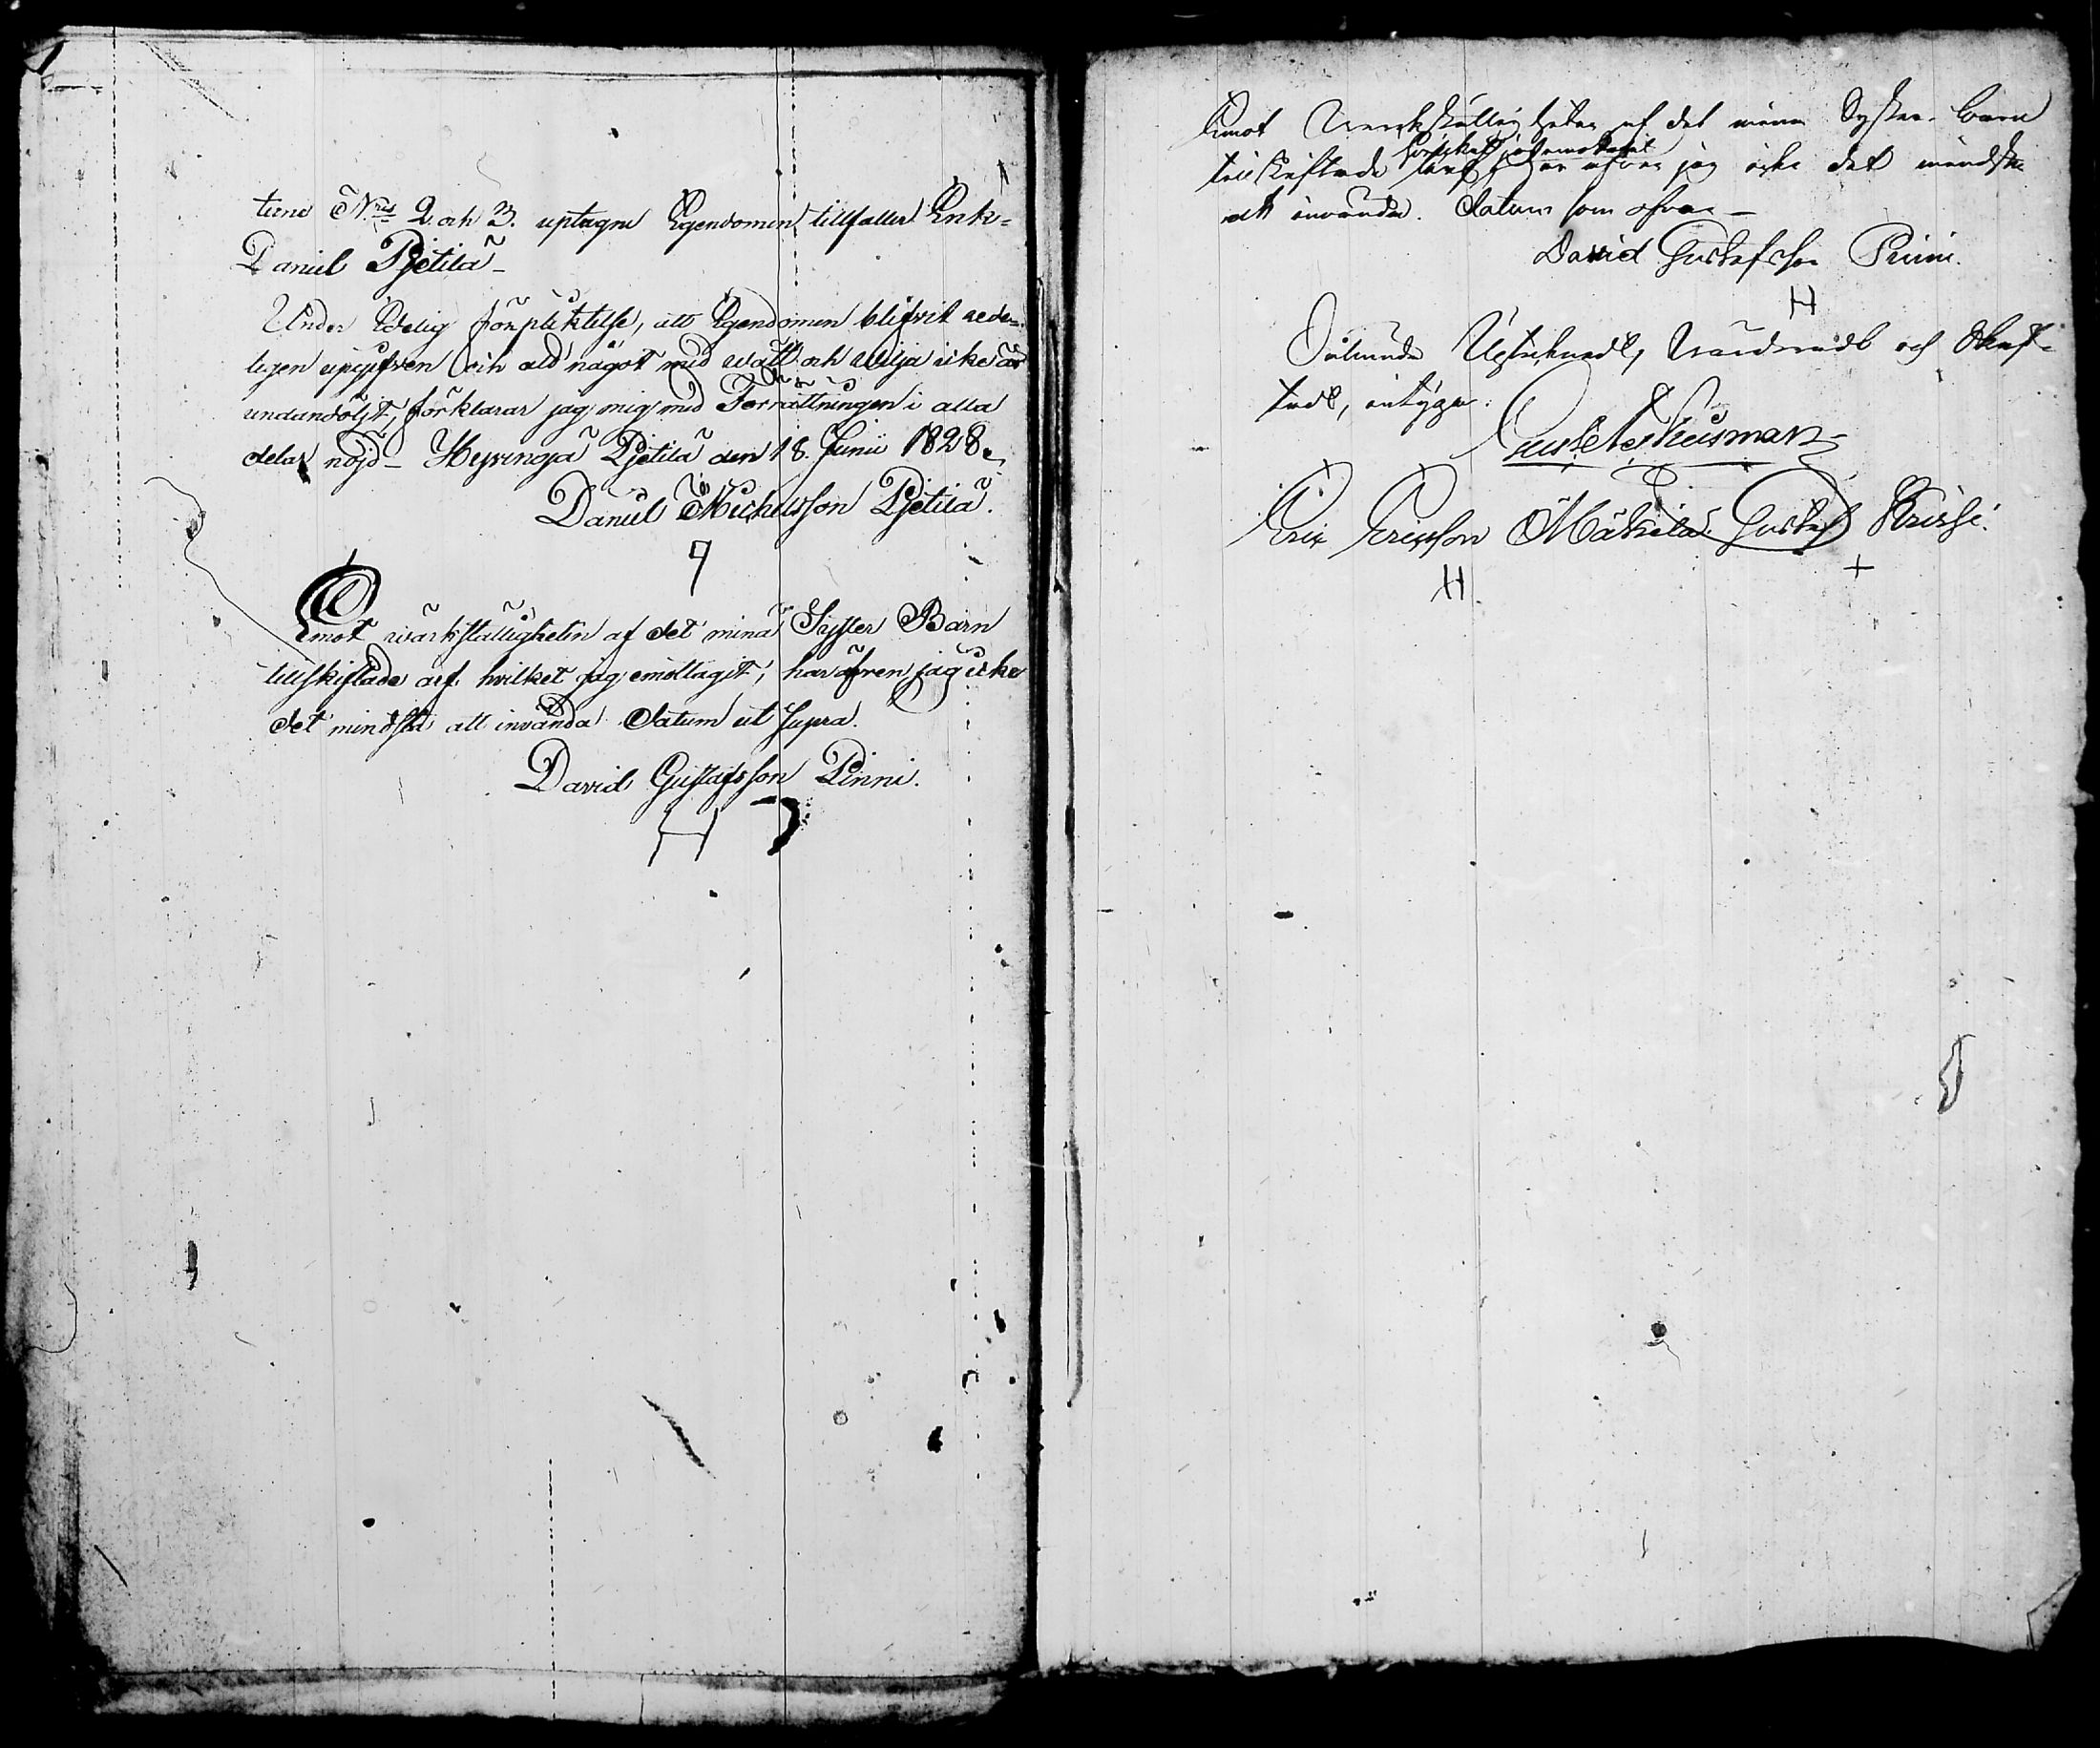 terne N:ris 2 och 3. uptagne Egendomen tillfaller Enk=
Daniel Pjetilä_
Under Edelig förpliktelse, att Egendomen blifvit rede=
ligen uppgifven och att något med wett och wilja icke är
undandöljt, förklarar jag mig med Förrättningen i alla
delar nöjd_ Hyvingä Pjetilä den 18. Junii 1828.
Daniel Michelsson Pjetilä.
Emot wärkställigheten af det mina Syster Barn
tillskiftade arf. hvilket jag emottagit, har äfven jag icke
det mindsta att invända. Datum ut supra.
David Gustafsson Pinni.
H
Emot Werkställigheten af det mina Syster-barn
hvilket jag emottagit
tillskiftade arf har äfven jag icke det mindsta
att invända. Datum som ofvan_
David Gustafsson Pinni.
H
Sålunda Uptecknadt, Värderadt och Skif-
tadt, intyga.
Gust: Nerhusman
Eric Ericsson Mäkilä Gustaf Krissi.
H +